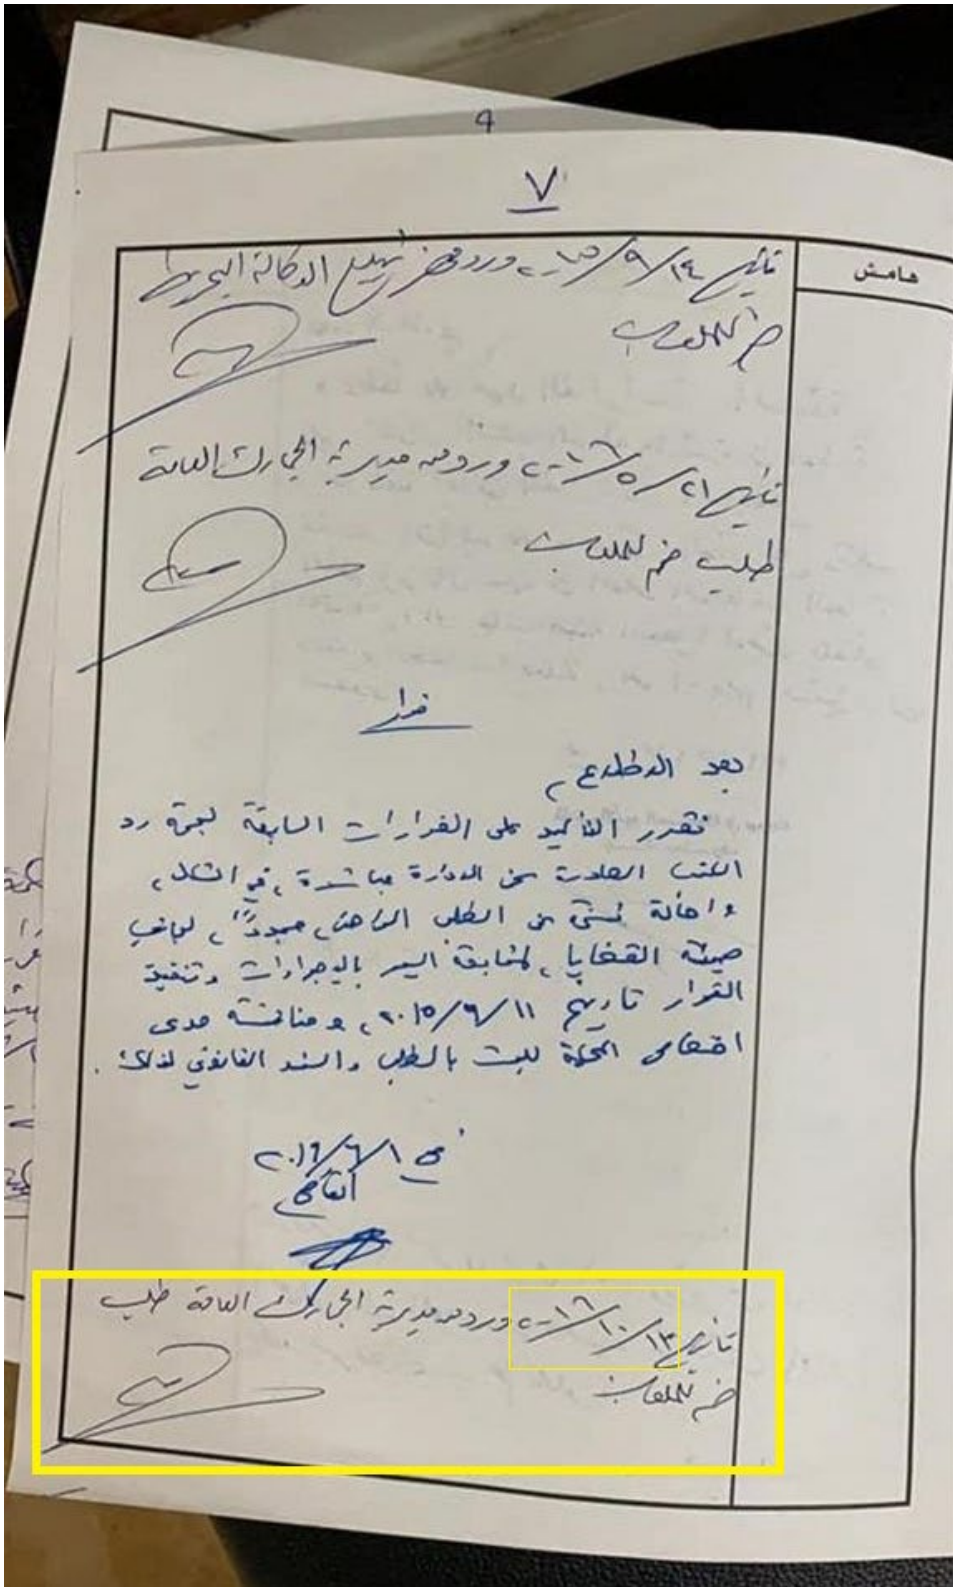 ٩
٧
هامش
تاريخ ١٤/٩/٢٠١٥ ورد محضر تبليغ الوكالة البحرية
ضم للملف
تاريخ ٢١/٥/٢٠١٦ ورد من مديرية الجمارك العامة
طلب ضم للملف
قرار
بعد الاطلاع،
نقرر التأكيد على القرارات السابقة لجهة رد
الكتب الصادرة عن الادارة مباشرة، في الشكل،
واحالة نسخة عن الطلب الراهن، مجدداً، لجانب
هيئة القضايا، لمتابعة السير بالاجراءات وتنفيذ
القرار تاريخ ١١/٦/٢٠١٥، ومناقشة مدى
اختصاص المحكمة للبت بالطلب والسند القانوني لذلك.
في ١/٦/٢٠١٦
القاضي
تاريخ ١٣/١٠/٢٠١٦ ورد من مديرية الجمارك العامة طلب
ضم للملف